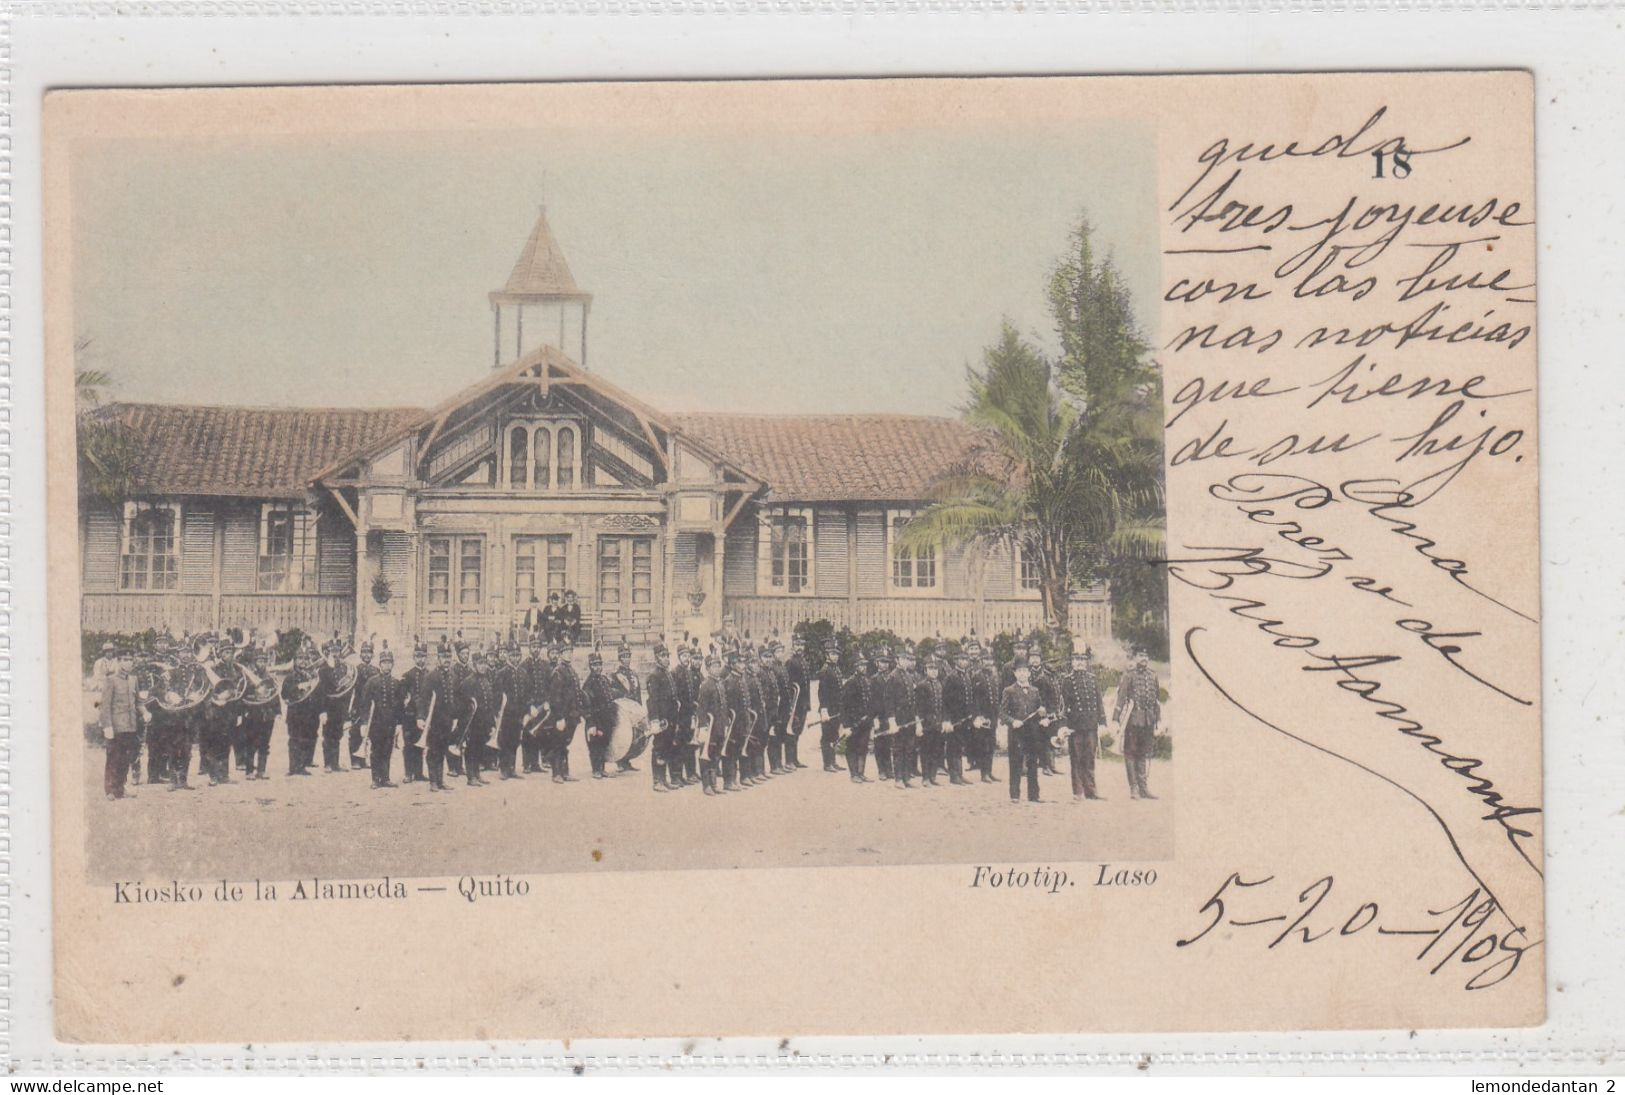 queda
18
tres joyeuse
con las bue-
nas noticias
que tiene
de su hijo.
Ana
Perez v de
Bustamante
5-20-1908
Kiosko de la Alameda — Quito
Fototip. Laso
www.delcampe.net
lemondedantan 2